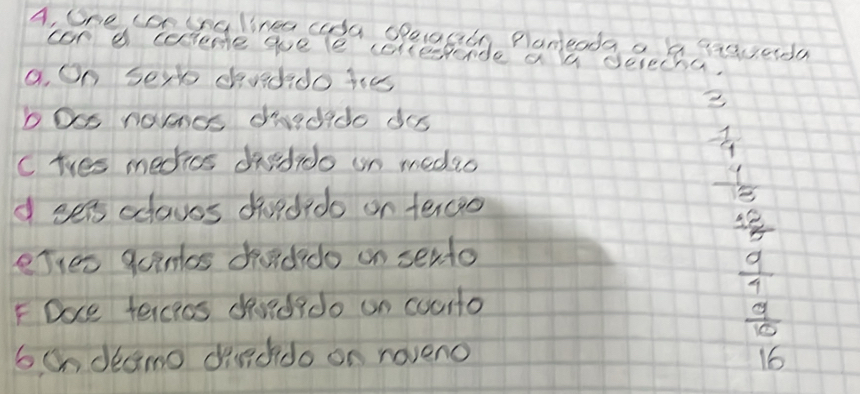 4. Une con una linea cada operación planteada a la izquierda
con el cociente que le corresponde a la derecha.
a. Un sexto dividido tres
3
b Dos novenos dividido dos
c tres medios dividido un medio
d seis octavos dividido un tercio
e Tres quintos dividido un sexto
9/4
F Doce tercios dividido un cuarto
9/10
6. Un décimo dividido un noveno
16